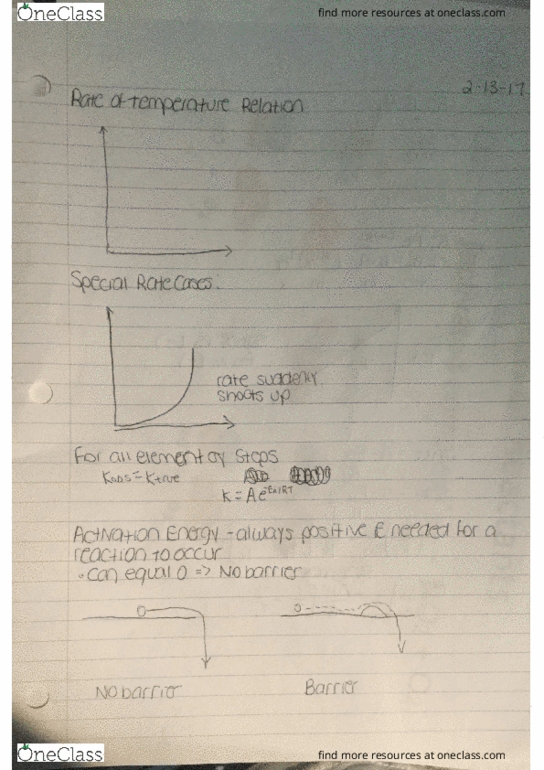 OneClass
find more resources at oneclass.com
2-13-17
Rate of temperature Relation
Special Rate Cases:
rate suddenly
shoots up
For all elementary Steps
Kobs = Ktrue
k = Ae^-Ea/RT
Activation Energy - always positive E needed for a
reaction to occur
• can equal 0 => No barrier
No barrier
Barrier
OneClass
find more resources at oneclass.com